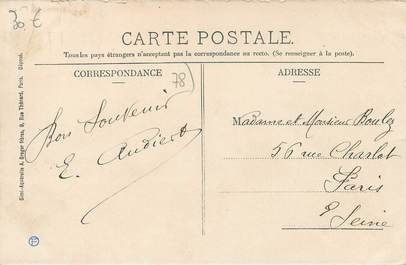 30 €
CARTE POSTALE.
Tous les pays étrangers n'acceptent pas la correspondance au recto. (Se renseigner à la poste).
CORRESPONDANCE
78
ADRESSE
Bon Souvenir
E. Audiert
Madame et Monsieur Boulez
56 rue Charlot
Paris
Seine
Simi-Aquarelle A. Breger frères, 9, Rue Thénard, Paris. Déposé.